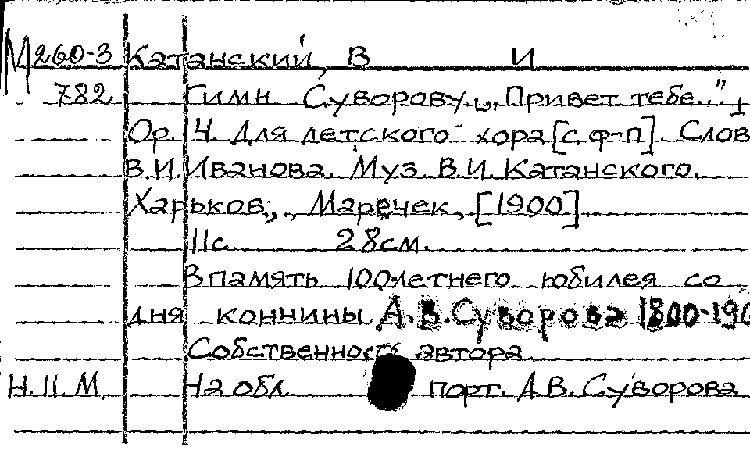 М 260-3 Катанский, В И
782 Гимн Суворову. „Привет тебе.."
Ор. 4. Для детского хора [с ф-п]. Слов
В.И. Иванова. Муз. В.И. Катанского.
Харьков, Маречек, [1900]
11с. 28см.
В память 100-летнего юбилея со
дня коннины А.В. Суворова 1800-190
Собственность автора.
Н.П.М. На обл. порт. А.В. Суворова